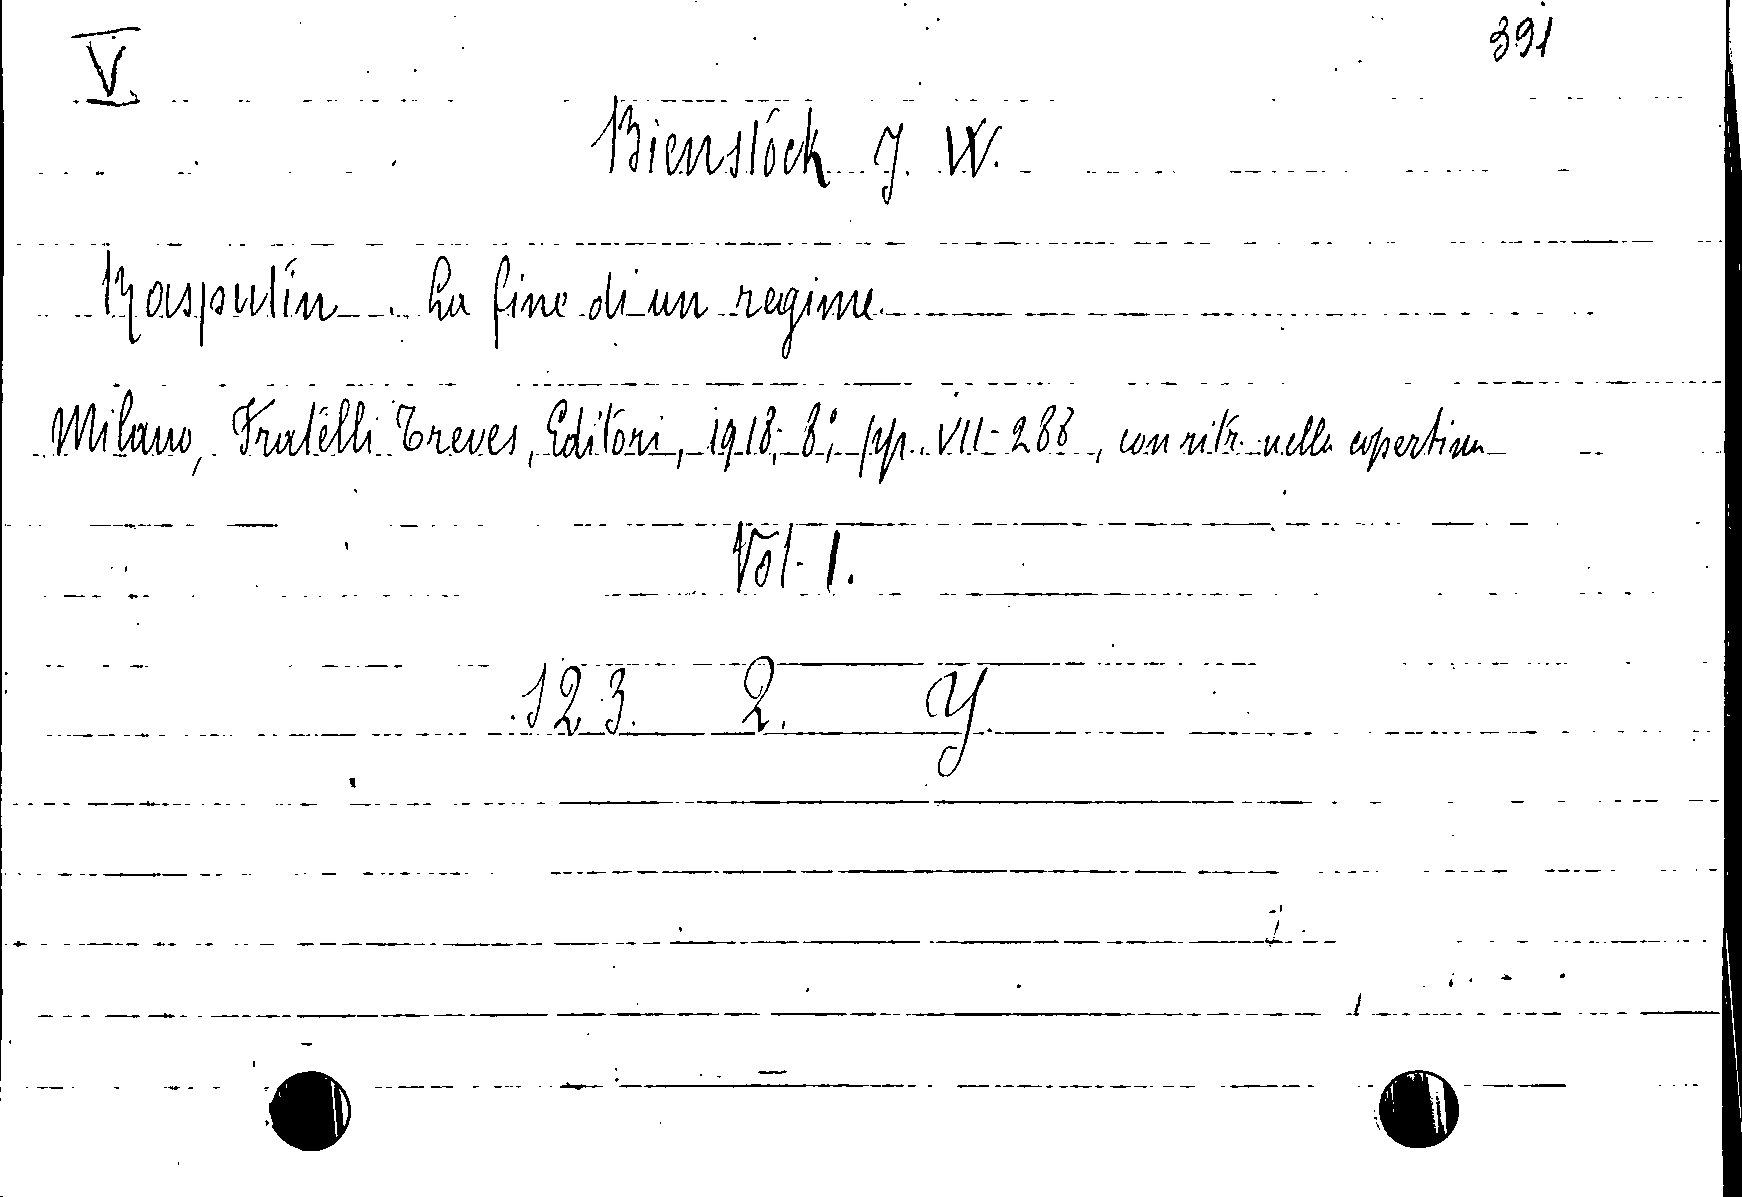 V.
391
Bienstock J. W.
Rasputin. La fine di un regime.
Milano, Fratelli Treves, Editori, 1918; 8°, pp. VII-288, con ritr. nella copertina
Vol. 1.
123. 2. Y.